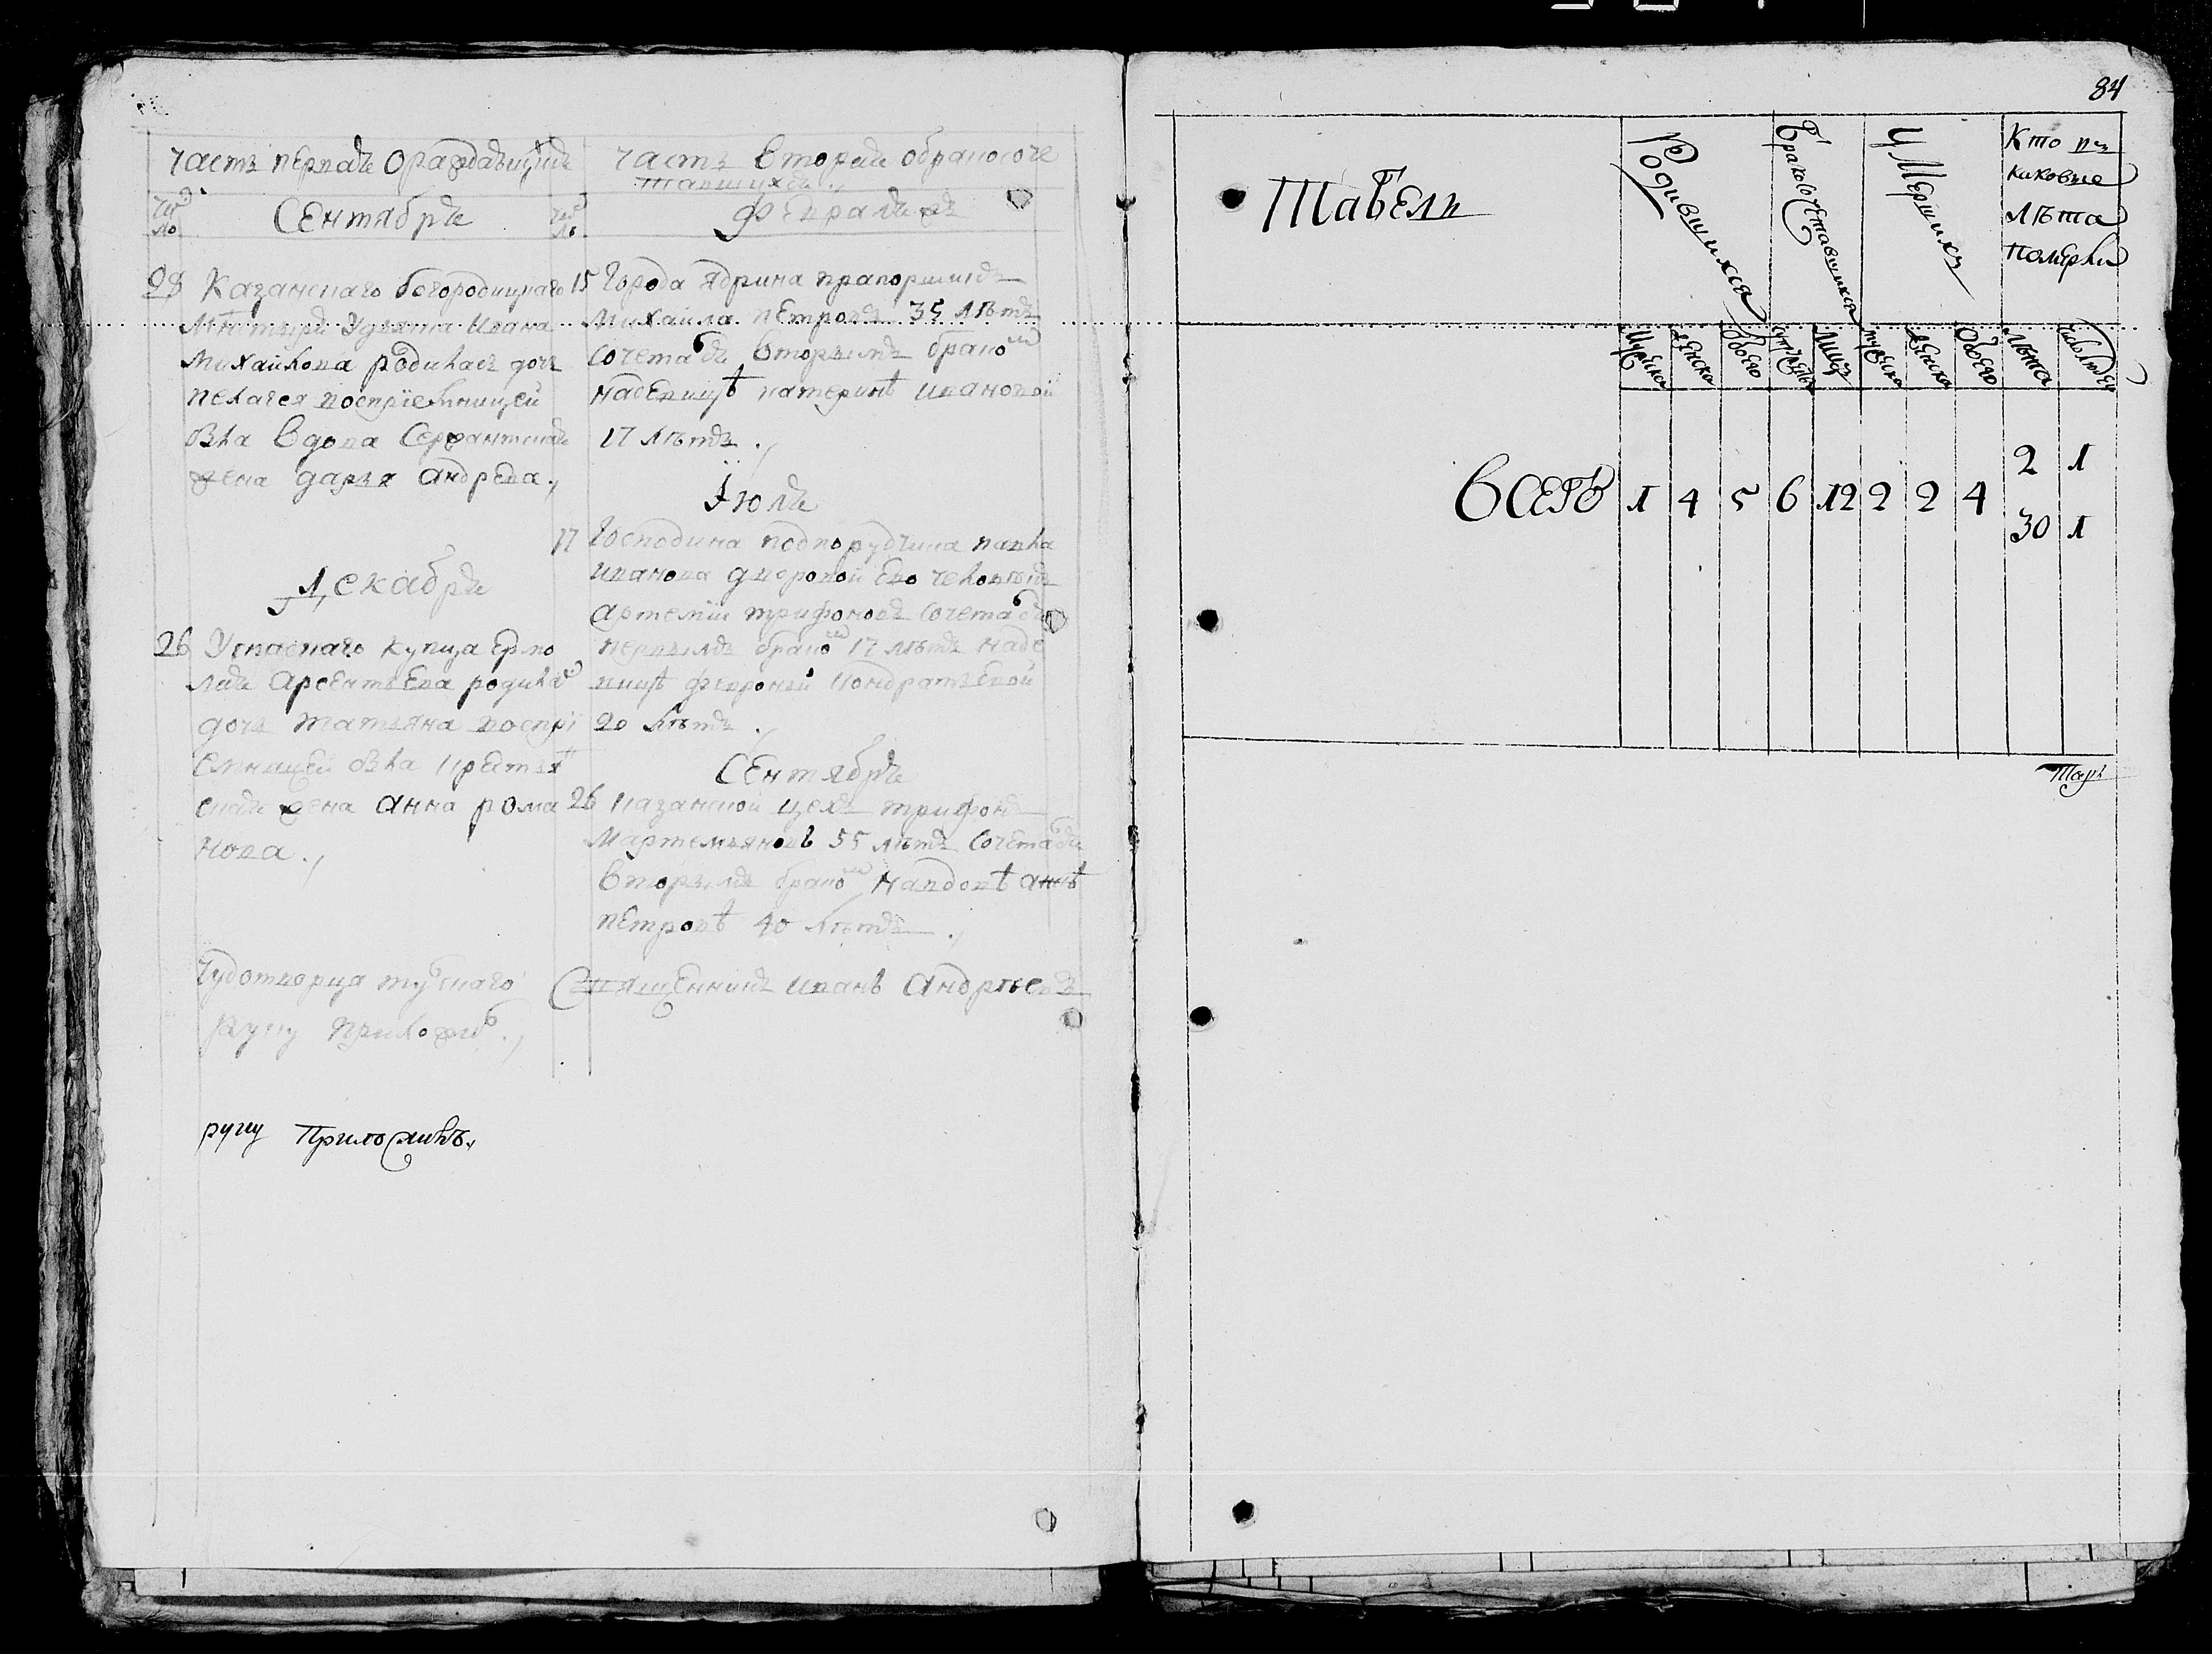 часть первая о раждающихъ
Число
Сентябрь
28 Казанскаго богородицкаго
Ивана
Михайлова родилась дочь
пелагея восприемницей
была вдова
жена дарья андрева.
Декабрь
26 Успаскаго купца ермо
лая арсентьева родилас
дочь татьяна воспрі
емницей была
жена анна рома
нова.
Чудотворца
руку приложилъ.
руку Приложилъ.
часть вторая о бракосоче
тавшихся.
Число
Февраль
15 Города ядрина прапорщикъ
михаила петровъ 35 лѣтъ
сочетавъ вторымъ браком
на девицѣ катеринѣ ивановой
17 лѣтъ.
Їюль
17 Господина подпоручика павла
иванова дворовой ево человѣкъ
артемїи трифоновъ сочетавъ
первымъ браком 17 лѣтъ на де
вицѣ февроньи кондратьевой
20 лѣтъ.
Сентябрь
26 казанской цехъ трифонъ
мартемьяновъ 55 лѣтъ сочетавъ
вторымъ браком на вдовѣ аннѣ
петровѣ 40 лѣтъ.
Священникъ иванъ андрѣевъ
84
Табели
Родившихся
Бракосочетавшихся
Умерших
Кто въ
каковые
лѣта
померли
мужеска
женска
обоего
Лицъ
мужеска
женска
обоего
лѣта
всего 1 4 5 6 12 2 2 4
2 1
30 1